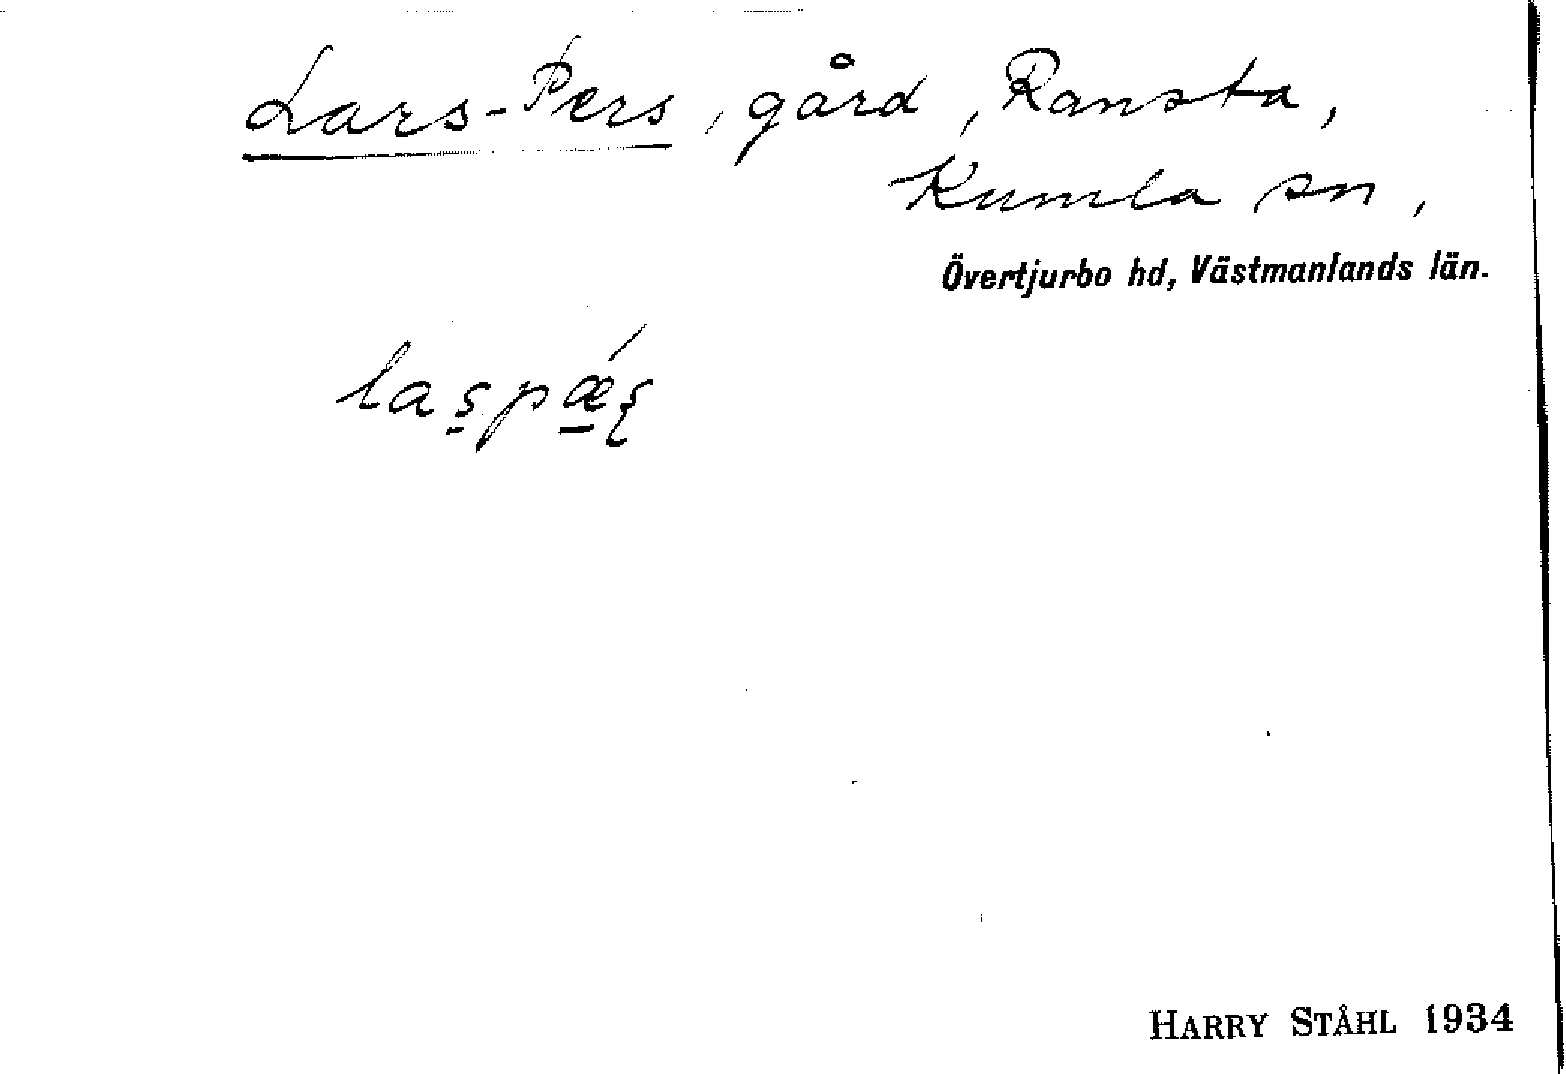 Lars-Pers, gård, Ransta,
Kumla sn,
Övertjurbo hd, Västmanlands län.
las̱pǽ̱ʂ
HARRY STÅHL 1934